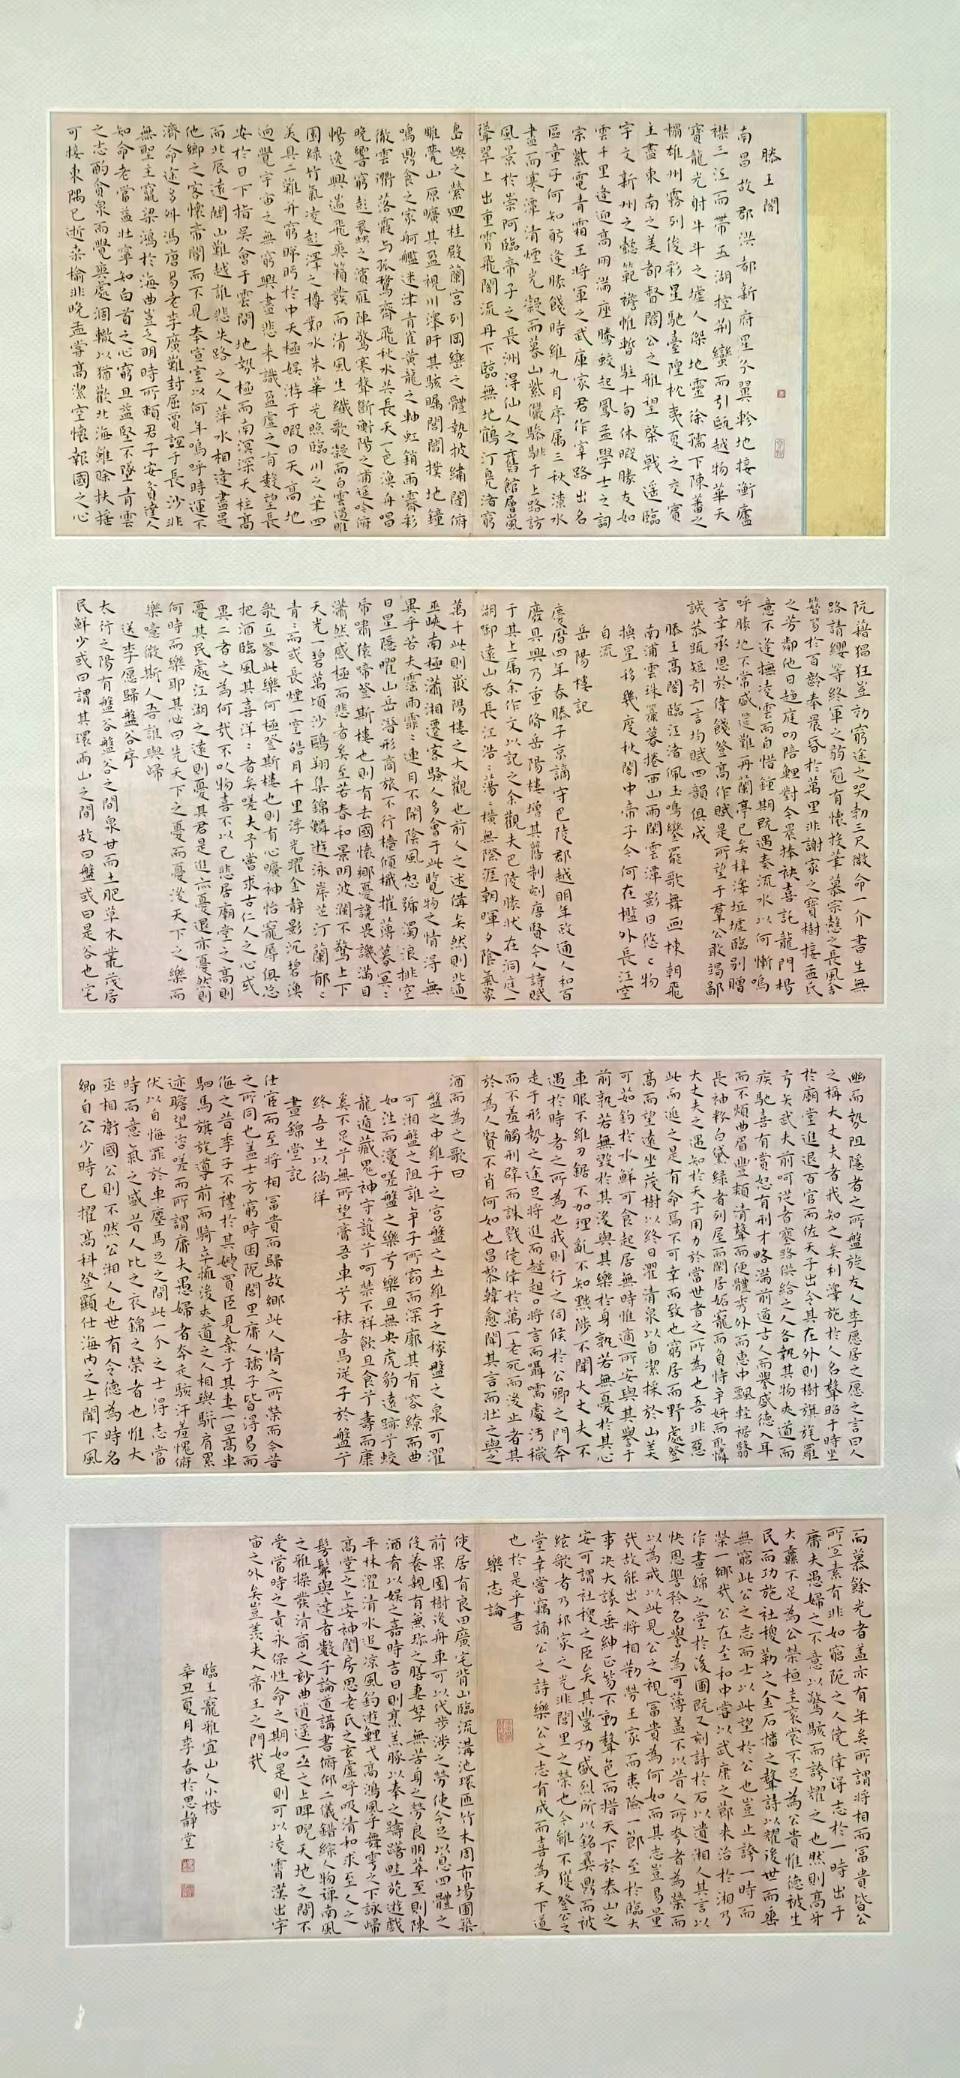 滕王閣
南昌故郡洪都新府星分翼軫地接衡廬
襟三江而帶五湖控荊蠻而引甌越物華天
寶龍光射牛斗之墟人傑地靈徐孺下陳蕃之
榻雄州霧列俊彩星馳臺隍枕夷夏之交賓
主盡東南之美都督閻公之雅望棨戟遙臨
宇文新州之懿範襜惟暫駐十旬休暇勝友如
雲千里逢迎高朋滿座騰蛟起鳳孟學士之詞
宗紫電青霜王將軍之武庫家君作宰路出名
區童子何知躬逢勝餞時維九月序屬三秋潦水
盡而寒潭清煙光凝而暮山紫儼驂騑于上路訪
風景於崇阿臨帝子之長洲得仙人之舊館層巒
聳翠上出重霄飛閣流丹下臨無地鶴汀鳧渚窮
島嶼之縈迴桂殿蘭宮列岡巒之體勢披繡闥俯
雕甍山原曠其盈視川澤盱其駭矚閭閻撲地鐘
鳴鼎食之家舸艦迷津青雀黃龍之舳虹銷雨霽彩
徹雲衢落霞与孤鶩齊飛秋水共長天一色漁舟唱
晚響窮彭蠡之濱雁陣驚寒聲斷衡陽之浦遥吟俯
暢逸興遄飛爽籟發而清風生纖歌凝而白雲遏睢
園綠竹氣凌彭澤之樽鄴水朱華光照臨川之筆四
美具二難并窮睇眄於中天極娛游于暇日天高地
迥覺宇宙之無窮興盡悲来識盈虛之有數望長
安於日下指吳會于雲間地勢極而南溟深天柱高
而北辰遠關山難越誰悲失路之人萍水相逢盡是
他鄉之客懷帝閽而不見奉宣室以何年嗚呼時運不
濟命途多舛馮唐易老李廣難封屈賈誼于長沙非
無聖主竄梁鴻於海曲豈乏明時所賴君子安貧達人
知命老當益壯寧知白首之心窮且益堅不墜青雲
之志酌貪泉而覺爽處涸轍以猶歡北海雖賒扶搖
可接東隅已逝桑榆非晚孟嘗高潔空懷報國之心
阮籍猖狂豈効窮途之哭勃三尺微命一介書生無
路請纓等終軍之弱冠有懷投筆慕宗慤之長風舍
簪笏於百齡奉晨昏於萬里非謝家之寶樹接孟氏
之芳鄰他日趨庭叨陪鯉對今晨捧袂喜託龍門楊
意不逢撫凌雲而自惜鍾期既遇奏流水以何慚嗚
呼勝地不常盛筵難再蘭亭已矣梓澤坵墟臨別贈
言幸承恩於偉餞登高作賦是所望于羣公敢竭鄙
誠恭疏短引一言均賦四韻俱成
滕王高閣臨江渚佩玉鳴鑾罷歌舞画棟朝飛
南浦雲珠簾暮捲西山雨閒雲潭影日悠〻物
換星移幾度秋閣中帝子今何在檻外長江空
自流
岳陽樓記
慶曆四年春滕子京謫守巴陵郡越明年政通人和百
廢具興乃重脩岳陽樓增其舊制刻唐賢今人詩賦
于其上属余作文以記之余觀夫巴陵勝状在洞庭一
湖啣遠山吞長江浩〻蕩〻橫無際涯朝暉夕陰氣象
萬千此則岳陽樓之大觀也前人之述俻矣然則北通
巫峽南極瀟湘遷客騷人多會于此覽物之情得無
異乎若夫霪雨霏〻連月不開陰風怒號濁浪排空
日星隱曜山岳潛形商旅不行檣傾檝摧薄暮冥〻
虎嘯猿啼登斯樓也則有去國懷鄉憂讒畏譏滿目
瀟然感極而悲者矣至若春和景明波瀾不驚上下
天光一碧萬頃沙鷗翔集錦鱗遊泳岸芷汀蘭郁〻
青〻而或長煙一空皓月千里浮光躍金静影沉碧漁
歌互答此樂何極登斯樓也則有心曠神怡寵辱俱忘
把酒臨風其喜洋〻者矣嗟夫予嘗求古仁人之心或
異二者之為何哉不以物喜不以己悲居廟堂之高則
憂其民處江湖之遠則憂其君是進亦憂退亦憂然則
何時而樂耶其必曰先天下之憂而憂後天下之樂而
樂噫微斯人吾誰與歸
送李愿歸盤谷序
太行之陽有盤谷盤谷之間泉甘而土肥草木叢茂居
民鮮少或曰謂其環兩山之間故曰盤或曰是谷也宅
幽而勢阻隱者之所盤旋友人李愿居之愿之言曰人
之稱大丈夫者我知之矣利澤施於人名聲昭于時坐
於廟堂進退百官而佐天子出令其在外則樹旗旄羅
弓矢武夫前呵従者塞路供給之人各執其物夾道而
疾馳喜有賞怒有刑才畯滿前道古人而譽盛德入耳
而不煩曲眉豐頰清聲而便體秀外而惠中飄輕裾翳
長袖粉白黛綠者列屋而閒居妬寵而負恃爭妍而取憐
大丈夫之遇知於天子用力於當世者之所為也吾非惡
此而逃之是有命焉不可幸而致也窮居而野處登
高而望遠坐茂樹以終日濯清泉以自潔採於山美
可茹釣於水鮮可食起居無時惟適所安與其譽于
前孰若無毀於其後與其樂於身孰若無憂於其心
車服不維刀鋸不加理亂不知黜陟不聞大丈夫不
遇於時者之所為也我則行之伺候於公卿之門奔
走于形勢之途足將進而趑趄口將言而囁嚅處汚穢
而不羞觸刑辟而誅戮僥倖於萬一老死而後止者其
於為人賢不肖何如也昌黎韓愈聞其言而壮之與之
酒而為之歌曰
盤之中維子之宫盤之土維子之稼盤之泉可濯
可湘盤之阻誰争子所窈而深廓其有容繚而曲
如往而復嗟盤之樂兮樂且無央虎豹遠跡兮蛟
龍遁藏鬼神守護兮呵禁不祥飲且食兮壽而康
無不足兮無所望膏吾車兮秣吾馬從子於盤兮
終吾生以徜徉
晝錦堂記
仕宦而至將相富貴而歸故鄉此人情之所榮而今昔
之所同也盖士方窮時困阨閭里庸人孺子皆得易而
侮之若季子不禮於其嫂買臣見棄于其妻一旦髙車
駟馬旗旄導前而騎卒擁後夾道之人相與駢肩累
迹瞻望咨嗟而所謂庸夫愚婦者奔走駭汗羞愧俯
伏以自悔罪於車塵馬足之間此一介之士得志當
時而意氣之盛昔人比之衣錦之榮者也惟大
丞相衛國公則不然公湘人也世有令德為時名
卿自公少時已擢髙科登顯仕海内之士聞下風
而慕餘光者盖亦有年矣所謂將相而富貴皆公
所宜素有非如窮阨之人僥倖得志於一時出于
庸夫愚婦之不意以驚駭而誇耀之也然則高牙
大纛不足為公榮桓圭衮裳不足為公貴惟德被生
民而功施社稷勒之金石播之聲詩以耀後世而垂
無窮此公之志而士以此望於公也豈止誇一時而
榮一鄉哉公在至和中嘗以武康之節来治於湘乃
作晝錦之堂於後圃既又刻詩於石以遺湘人其言以
快恩讐矜名譽為可薄盖不以昔人所夸者為榮而
以為戒以此見公之視富貴為何如而其志豈易量
哉故能出入將相勤勞王家而夷險一節至於臨大
事决大議垂紳正笏不動聲色而措天下於泰山之
安可謂社稷之臣矣其豐功盛烈所以銘彝鼎而被
絃歌者乃邦家之光非閭里之榮也今雖不從登公之
堂幸嘗竊誦公之詩樂公之志有成而喜為天下道
也於是乎書
樂志論
使居有良田廣宅背山臨流溝池環匝竹木周布場圃築
前果園樹後舟車可以代步涉之勞使令足以息四體之
役養親有無珎之膳妻孥無苦身之勞良朋萃至則陳
酒肴以娛之嘉時吉日則烹羔豚以奉之躊躇畦苑遊戲
平林濯清水追凉風釣遊鯉弋高鴻風乎舞雩之下詠歸
高堂之上安神閨房思老氏之玄虛呼吸清和求至人之
髣髴與達者數子論道講書俯仰二儀錯綜人物彈南風
之雅操發清商之妙曲逍遥一世之上睥睨天地之間不
受當時之責永保性命之期如是則可以凌霄漢出宇
宙之外矣豈羨夫入帝王之門哉
臨王寵雅宜山人小楷
辛丑夏月李春於思静堂